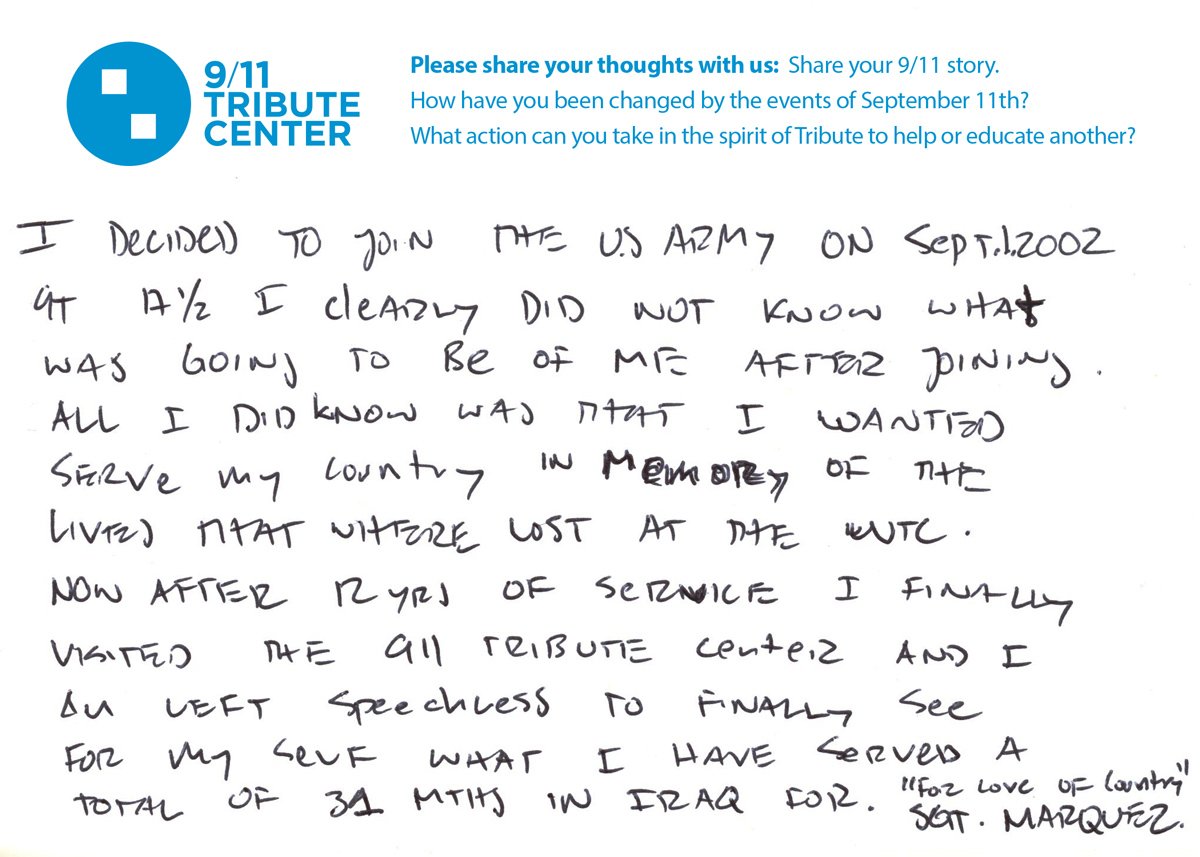 9/11
TRIBUTE
CENTER
Please share your thoughts with us: Share your 9/11 story.
How have you been changed by the events of September 11th?
What action can you take in the spirit of Tribute to help or educate another?
I DeciDeD TO JOIN THE U.S ARMY ON SepT.1.2002
AT 17 1/2 I cleARly DID NOT KNOW WHAt
WAS GOING TO Be OF ME AFTER JOINING.
ALL I DID KNOW WAS THAT I WANTED
SERVe my country IN MEMORY OF THE
LIVES THAT WHERE LOST AT THE WTC.
NOW AFTER 12 YRS OF SERVICE I FINAlly
VISITED THE 911 TRIBUTE CenteR AND I
AM LEFT SpeechLESS TO FINALLY See
FOR My SeLF WHAT I HAVE SERVeD A
TOTAL OF 31 MTHS IN IRAQ FOR. "FOR LOVE OF Country"
SGT. MARQUEZ.